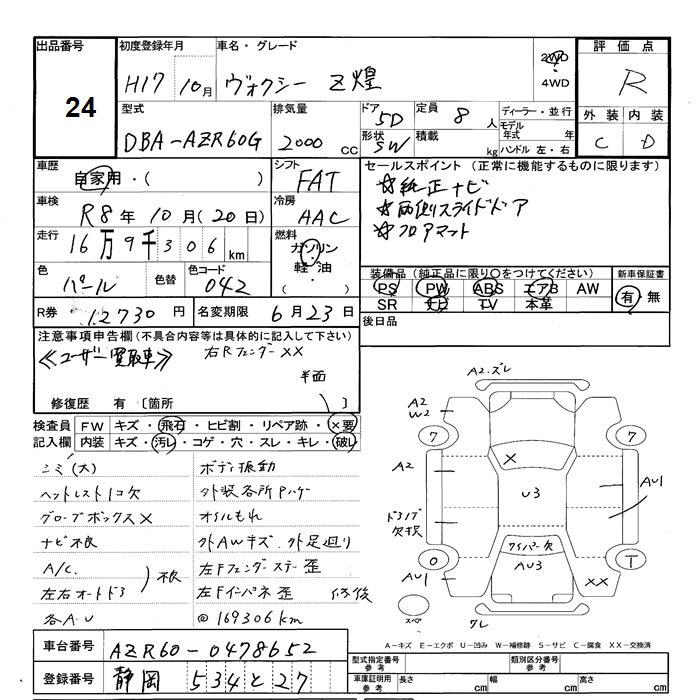 出品番号 24
初度登録年月 H17 10月
車名・グレード ヴォクシー Z煌
2WD
4WD
評価点 R
外装 内装
C D
型式 DBA-AZR60G
排気量 2000 cc
ドア 5D
形状 SW
定員 8人
積載 kg
ディーラー・並行
モデル年式 年
ハンドル 左・右
車歴 自家用・( )
シフト FAT
車検 R8年10月(20日)
冷房 AAC
走行 16万9千306km
燃料 ガソリン
軽油
・( )
色 パール 色替 色コード 042
R券 12730円
名変期限 6月23日
セールスポイント(正常に機能するものに限ります)
☆純正ナビ
☆両側スライドドア
☆フロアマット
装備品(純正品に限り○をつけてください)
PS PW ABS エアB AW
SR ナビ TV 本革
新車保証書
有・無
後日品
注意事項申告欄(不具合内容等は具体的に記入して下さい)
≪ユーザー買取車≫ 右Rフェンダー××
半面
修復歴 有 [箇所 ]
検査員記入欄
FW キズ・飛石・ヒビ割・リペア跡・×要
内装 キズ・汚レ・コゲ・穴・スレ・キレ・破レ
シミ(大)
ヘッドレスト1コ欠
グローブボックス×
ナビ不良
A/C.
左右オートドア
不良
各A・U
ボディ振動
外装各所Pハゲ
オイルもれ
外AWキズ 外足廻り
左Fフェンダーステー歪
左Fインパネ歪 修復
@169306km
A2.ズレ
A2
W2
7
7
A2
×
U3
AU1
ドアノブ
欠損
ワイパー欠
AU3
0
T
AU1
××
スペア
ワレ
A-キズ E-エクボ U-凹み W-補修跡 S-サビ C-腐食 XX-交換済
車台番号 AZR60-0478652
登録番号 静岡 534と27
型式指定番号
参考
類別区分番号
参考
車庫証明用
参考
長さ cm
幅 cm
高さ cm